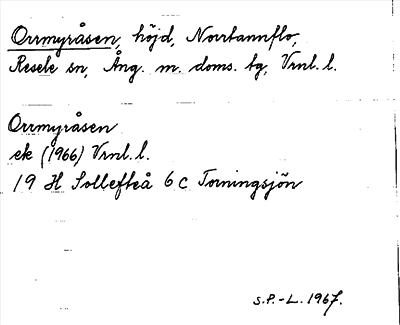 Orrmyråsen, höjd, Norrtannflo,
Resele sn, Ång. m. doms. tg, Vrnl. l.
Orrmyråsen
ek (1966) Vrnl. l.
19 H Sollefteå 6 c Torningsjön
S.P.-L. 1967.